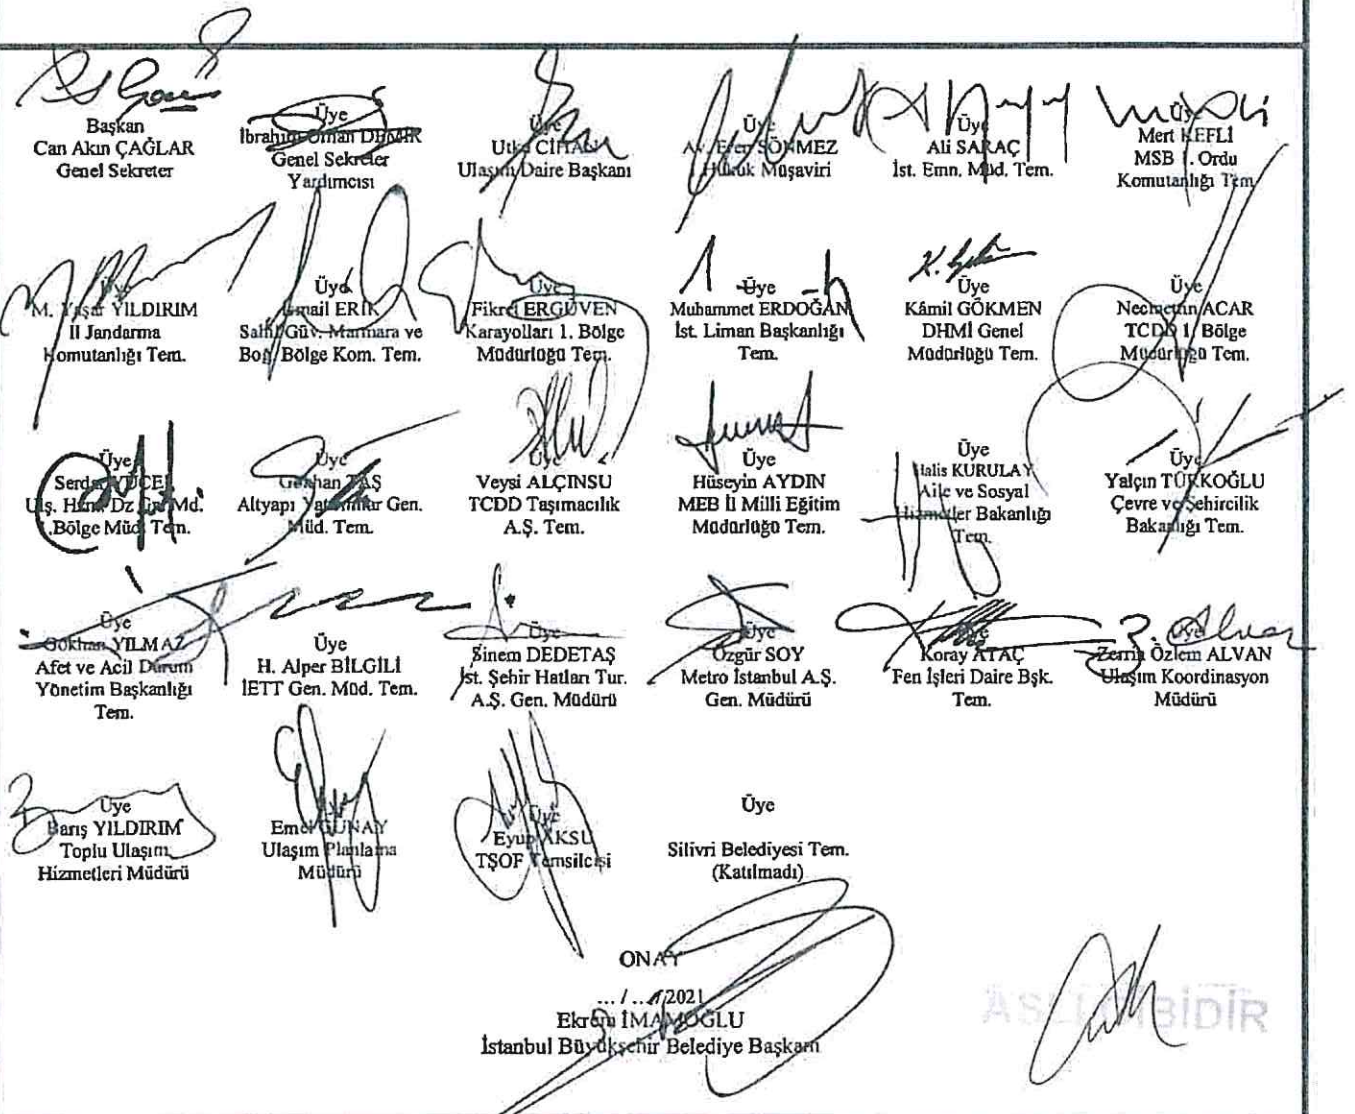 Başkan
Can Akın ÇAĞLAR
Genel Sekreter
Üye
İbrahim Orhan DEMİR
Genel Sekreter
Yardımcısı
Üye
Utku CİHAN
Ulaşım Daire Başkanı
Üye
Av. Eren SÖNMEZ
Hukuk Müşaviri
Üye
Ali SARAÇ
İst. Emn. Müd. Tem.
Üye
Mert KEFLİ
MSB 1. Ordu
Komutanlığı Tem.
Üye
M. Yaşar YILDIRIM
İl Jandarma
Komutanlığı Tem.
Üye
İsmail ERİK
Sahil Güv. Marmara ve
Boğ. Bölge Kom. Tem.
Üye
Fikret ERGÜVEN
Karayolları 1. Bölge
Müdürlüğü Tem.
Üye
Muhammet ERDOĞAN
İst. Liman Başkanlığı
Tem.
Üye
Kâmil GÖKMEN
DHMİ Genel
Müdürlüğü Tem.
Üye
Necmettin ACAR
TCDD 1. Bölge
Müdürlüğü Tem.
Üye
Serdar YÜCEL
Ulş. Hizm. Dz. Md.
Bölge Müd. Tem.
Üye
Gökhan TAŞ
Altyapı Yatırımlar Gen.
Müd. Tem.
Üye
Veysi ALÇINSU
TCDD Taşımacılık
A.Ş. Tem.
Üye
Hüseyin AYDIN
MEB İl Milli Eğitim
Müdürlüğü Tem.
Üye
Halis KURULAY
Aile ve Sosyal
Hizmetler Bakanlığı
Tem.
Üye
Yalçın TÜRKOĞLU
Çevre ve Şehircilik
Bakanlığı Tem.
Üye
Gökhan YILMAZ
Afet ve Acil Durum
Yönetim Başkanlığı
Tem.
Üye
H. Alper BİLGİLİ
İETT Gen. Müd. Tem.
Üye
Sinem DEDETAŞ
İst. Şehir Hatları Tur.
A.Ş. Gen. Müdürü
Üye
Özgür SOY
Metro İstanbul A.Ş.
Gen. Müdürü
Üye
Koray ATAÇ
Fen İşleri Daire Bşk.
Tem.
Üye
Zerrin Özlem ALVAN
Ulaşım Koordinasyon
Müdürü
Üye
Barış YILDIRIM
Toplu Ulaşım
Hizmetleri Müdürü
Üye
Emel GÜNAY
Ulaşım Planlama
Müdürü
Üye
Eyup AKSU
TŞOF Temsilcisi
Üye
Silivri Belediyesi Tem.
(Katılmadı)
ONAY
... / ... /2021
Ekrem İMAMOĞLU
İstanbul Büyükşehir Belediye Başkanı
ASLI GİBİDİR